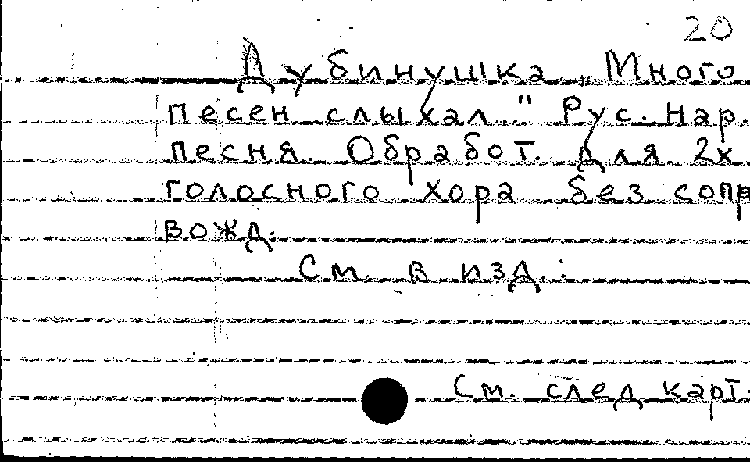 20
Дубинушка „Много
песен слыхал." Рус. Нар.
песня. Обработ. для 2х
голосного хора без сопр
вожд.
См. в изд.:
См. след карт.